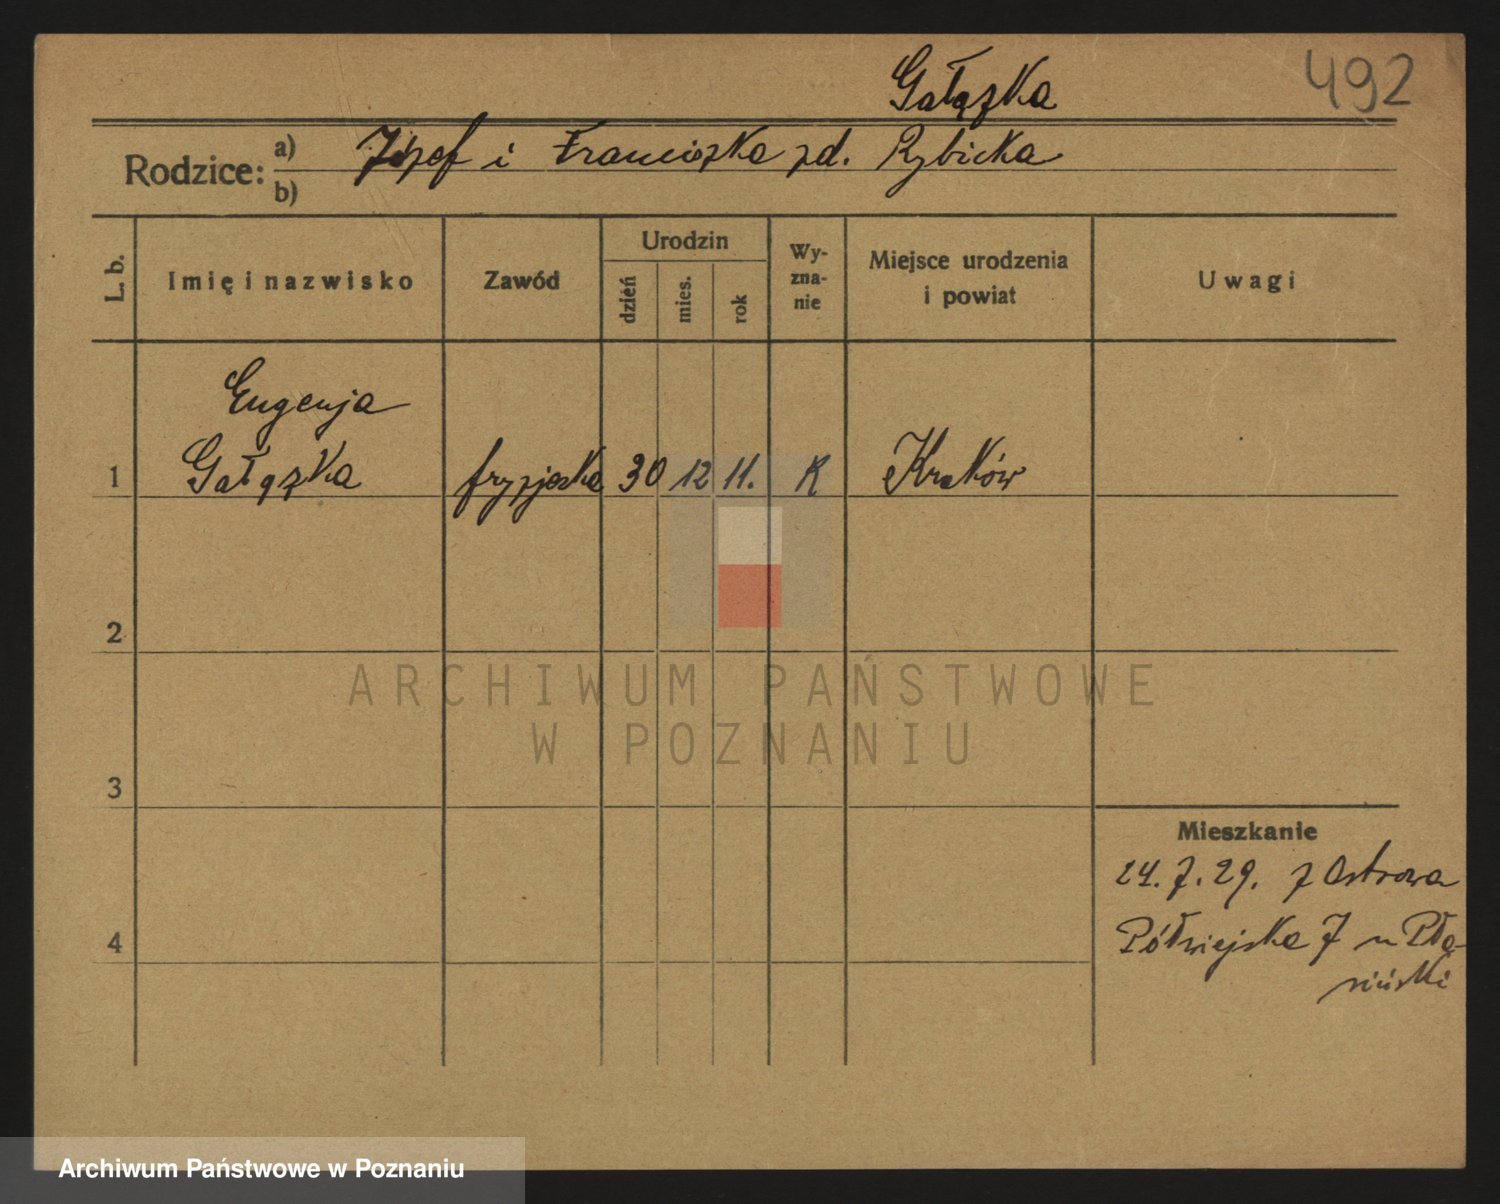 Gałązka
492
Rodzice: a) Józef i Franciszka zd. Rybicka
b)
L. b.
Imię i nazwisko
Zawód
Urodzin
dzień
mies.
rok
Wy-
zna-
nie
Miejsce urodzenia
i powiat
Uwagi
Eugenja
1 Gałązka fryzjerka 30 12 11. K Kraków
2
ARCHIWUM PAŃSTWOWE
W POZNANIU
3
Mieszkanie
24.7.29. z Ostrowa
Półwiejska 7 u
4
Archiwum Państwowe w Poznaniu